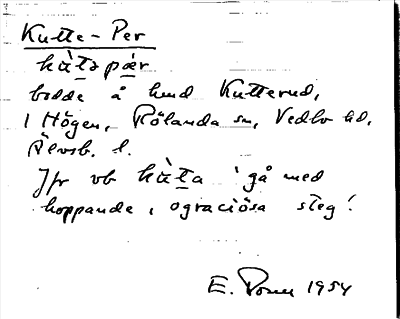 Kutte-Per
kùtəpǽr
bodde å lmd Kutterud,
i Högen, Rölanda sn, Vedbo hd,
Älvsb. l.
Jfr vb kùta 'gå med
hoppande, ograciösa steg'.
E. 1954